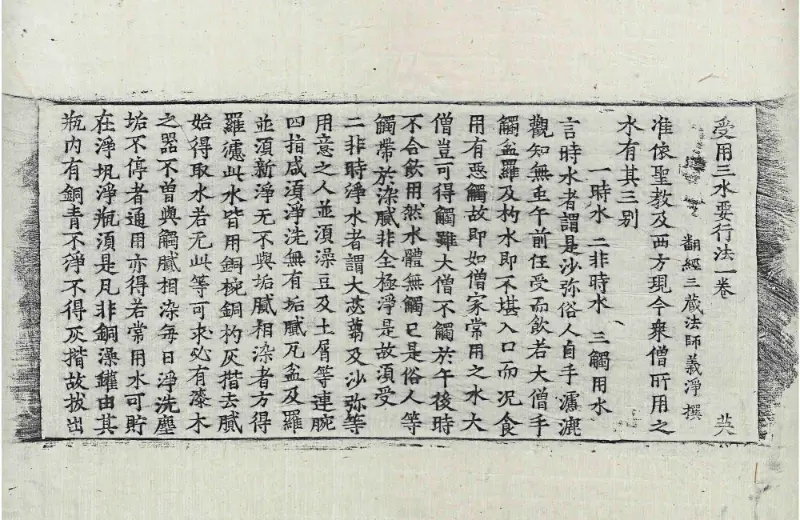 受用三水要行法一卷 英
翻經三藏法師義淨撰
准依聖教及西方現今衆僧所用之
水有其三別
一時水 二非時水 三觸用水
言時水者謂是沙弥俗人自手濾漉
觀知無虫午前任受而飲若大僧手
觸盆羅及杓水即不堪入口而況食
用有惡觸故即如僧家常用之水大
僧豈可得觸雖大僧不觸於午後時
不合飲用然水體無觸已是俗人等
觸帶於染膩非全極淨是故須受
二非時淨水者謂大苾蒭及沙弥等
用意之人並須澡豆及土屑等連腕
四指咸須淨洗無有垢膩瓦盆及羅
並須新淨无不與垢膩相染者方得
羅濾此水皆用銅椀銅杓灰揩去膩
始得取水若无此等可求必有漆木
之器不曾與觸膩相染每日淨洗塵
垢不停者通用亦得若常用水可貯
在淨瓨淨瓶須是凡非銅澡鑵由其
瓶内有銅青不淨不得灰揩故拔出